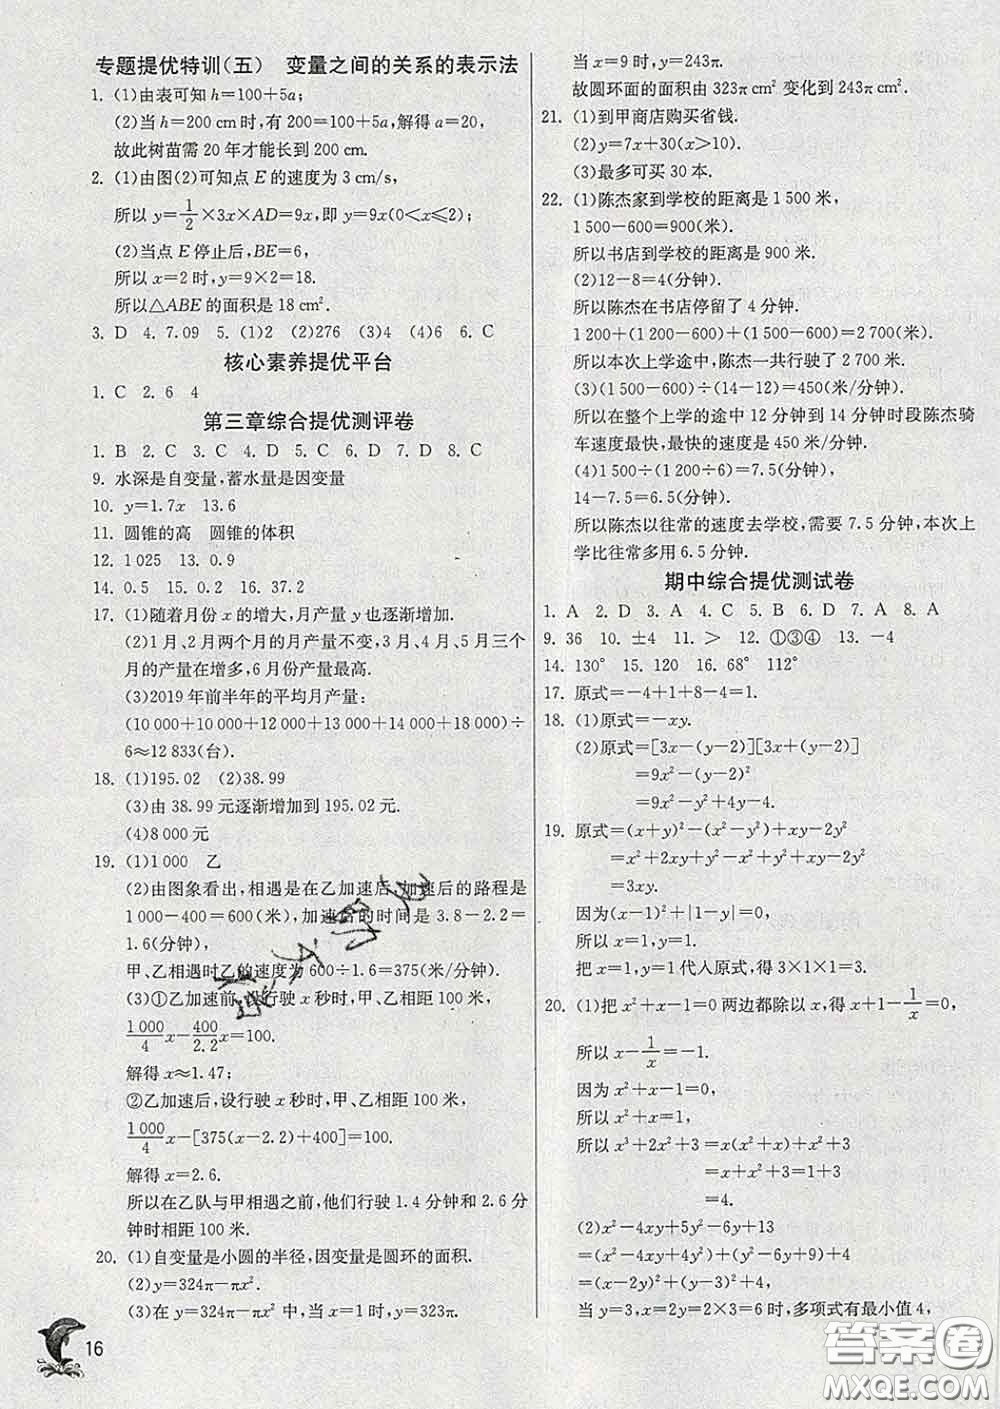 专题提优特训(五)　变量之间的关系的表示法
1. (1)由表可知 h=100+5a;
(2)当 h=200 cm时,有 200=100+5a,解得 a=20,
故此树苗需 20 年才能长到 200 cm.
2. (1)由图(2)可知点 E 的速度为 3 cm/s,
所以 y=1/2×3x×AD=9x,即 y=9x(0<x≤2);
(2)当点 E 停止后,BE=6,
所以 x=2 时,y=9×2=18.
所以△ABE 的面积是 18 cm².
3. D 4. 7.09 5. (1)2 (2)276 (3)4 (4)6 6. C
核心素养提优平台
1. C 2. 6 4
第三章综合提优测评卷
1. B 2. C 3. C 4. D 5. C 6. D 7. C 8. C
9. 水深是自变量,蓄水量是因变量
10. y=1.7x 13.6
11. 圆锥的高 圆锥的体积
12. 1 025 13. 0.9
14. 0.5 15. 20 16. 37.2
17. (1)随着月份 x 的增大,月产量 y也逐渐增加.
(2)1月、2月两个月的月产量不变,3月、4月、5月三个
月的产量在增多,6月份产量最高.
(3)2019 年前半年的平均月产量:
(10 000+10 000+12 000+13 000+14 000+18 000)÷
6≈12 833(台).
18. (1)195.02 (2)38.99
(3)由 38.99 元逐渐增加到 195.02 元.
(4)8 000 元
19. (1)1 000 乙
(2)由图象看出,相遇是在乙加速后,加速后的路程是
1 000-400=600(米),加速后的时间是 3.8-2.2=
1.6(分钟),
甲、乙相遇时乙的速度为 600÷1.6=375(米/分钟).
(3)①乙加速前,设行驶 x 秒时,甲、乙相距 100 米,
1 000/4 x-400/2.2 x=100.
解得 x≈1.47;
②乙加速后,设行驶 x 秒时,甲、乙相距 100 米,
1 000/4 x-[375(x-2.2)+400]=100.
解得 x=2.6.
所以在乙队与甲相遇之前,他们行驶 1.4 分钟和 2.6 分
钟时相距 100 米.
20. (1)自变量是小圆的半径,因变量是圆环的面积.
(2)y=324π-πx².
(3)在 y=324π-πx² 中,当 x=1 时,y=323π.
16
当 x=9 时,y=243π.
故圆环面的面积由 323π cm² 变化到 243π cm².
21. (1)到甲商店购买省钱.
(2)y=7x+30(x>10).
(3)最多可买 30 本.
22. (1)陈杰家到学校的距离是 1 500 米,
1 500-600=900(米).
所以书店到学校的距离是 900 米.
(2)12-8=4(分钟).
所以陈杰在书店停留了 4 分钟.
1 200+(1 200-600)+(1 500-600)=2 700(米).
所以本次上学途中,陈杰一共行驶了 2 700 米.
(3)(1 500-600)÷(14-12)=450(米/分钟).
所以在整个上学的途中 12 分钟到 14 分钟时段陈杰骑
车速度最快,最快的速度是 450 米/分钟.
(4)1 500÷(1 200÷6)=7.5(分钟),
14-7.5=6.5(分钟).
所以陈杰以往常的速度去学校,需要 7.5 分钟,本次上
学比往常多用 6.5 分钟.
期中综合提优测试卷
1. A 2. D 3. A 4. C 5. B 6. D 7. A 8. A
9. 36 10. ±4 11. > 12. ①③④ 13. -4
14. 130° 15. 120 16. 68° 112°
17. 原式=-4+1+8-4=1.
18. (1)原式=-xy.
(2)原式=[3x-(y-2)][3x+(y-2)]
=9x²-(y-2)²
=9x²-y²+4y-4.
19. 原式=(x+y)²-(x²-y²)+xy-2y²
=x²+2xy+y²-x²+y²+xy-2y²
=3xy.
因为(x-1)²+|1-y|=0,
所以 x=1,y=1.
把 x=1,y=1代人原式,得 3×1×1=3.
20. (1)把 x²+x-1=0 两边都除以 x,得 x+1-1/x=0.
所以 x-1/x=-1.
因为 x²+x-1=0,
所以 x²+x=1,
所以 x³+2x²+3=x(x²+x)+x²+3
=x+x²+3
=4.
(2)x²-4xy+5y²-6y+13
=(x²-4xy+4y²)+(y²-6y+9)+4
=(x-2y)²+(y-3)²+4,
当 y=3,x=2y=2×3=6 时,多项式有最小值 4,
答案圈
MXQE.COM